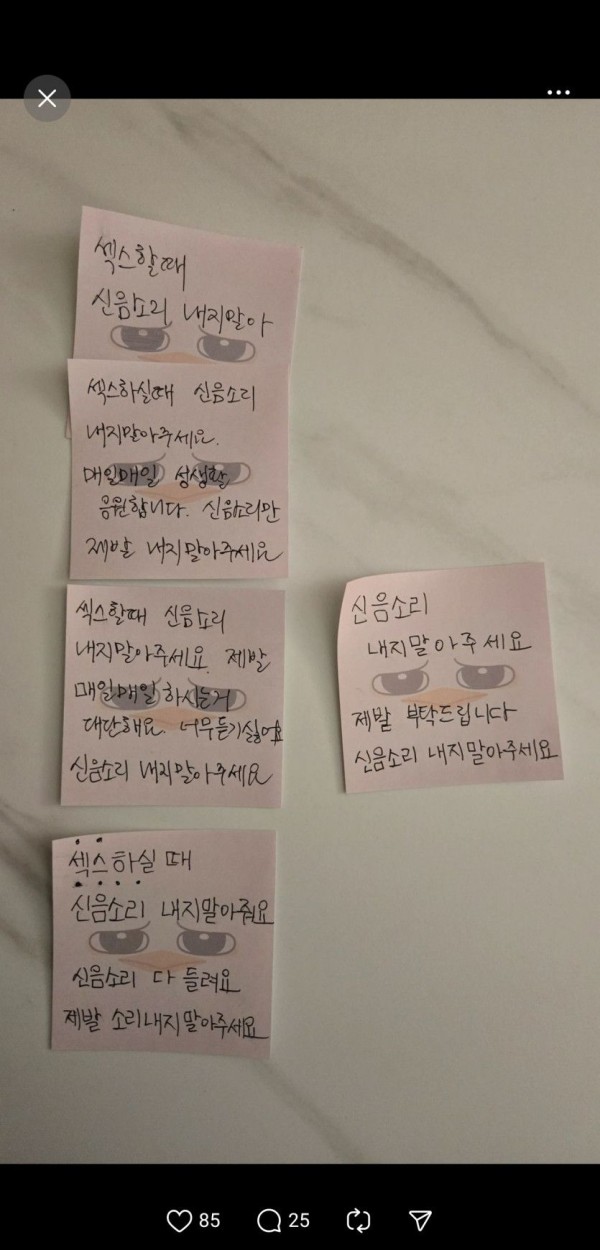 섹스할때
신음소리 내지말아
섹스하실때 신음소리
내지말아주세요.
매일매일 성생활
응원합니다. 신음소리만
제발 내지말아주세요
섹스할때 신음소리
내지말아주세요. 제발
매일매일 하시는거
대단해요. 너무듣기싫어요
신음소리 내지말아주세요
신음소리
내지말아주세요
제발 부탁드립니다
신음소리 내지말아주세요
섹스하실 때
신음소리 내지말아줘요
신음소리 다 들려요
제발 소리내지말아주세요
85
25